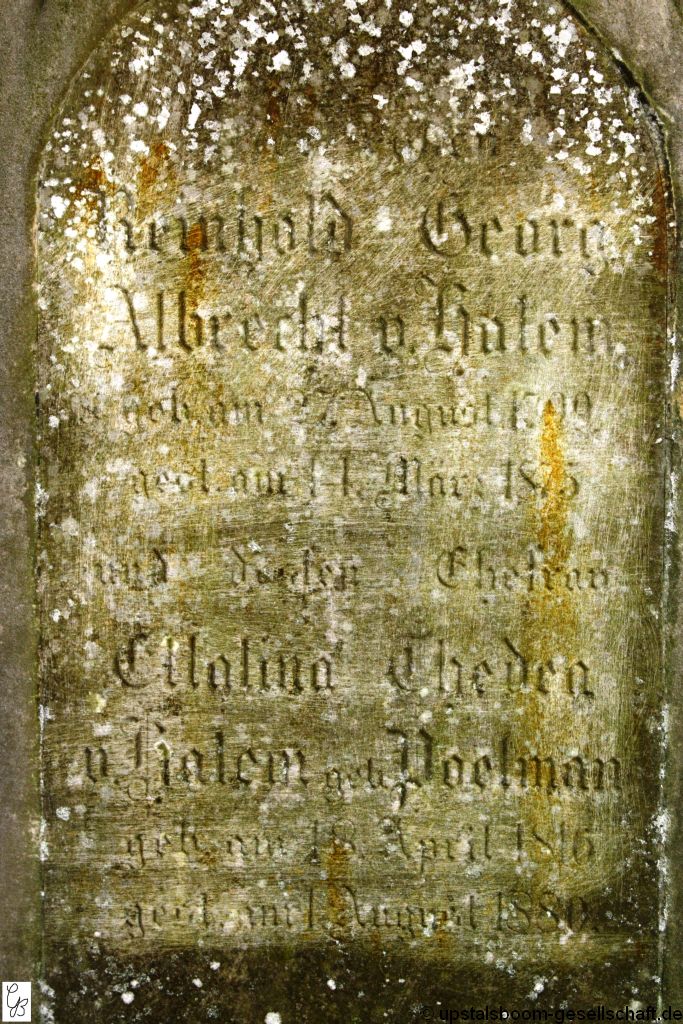 Reinhold Georg
Albrecht v. Halem,
geb. am 27. August
gest. am März
und dessen Ehefrau
Thedea
v. Halem geb. Poelman
geb. am 18. April 1816
gest. am 1. August 1880.
GB
© upstalsboom-gesellschaft.de